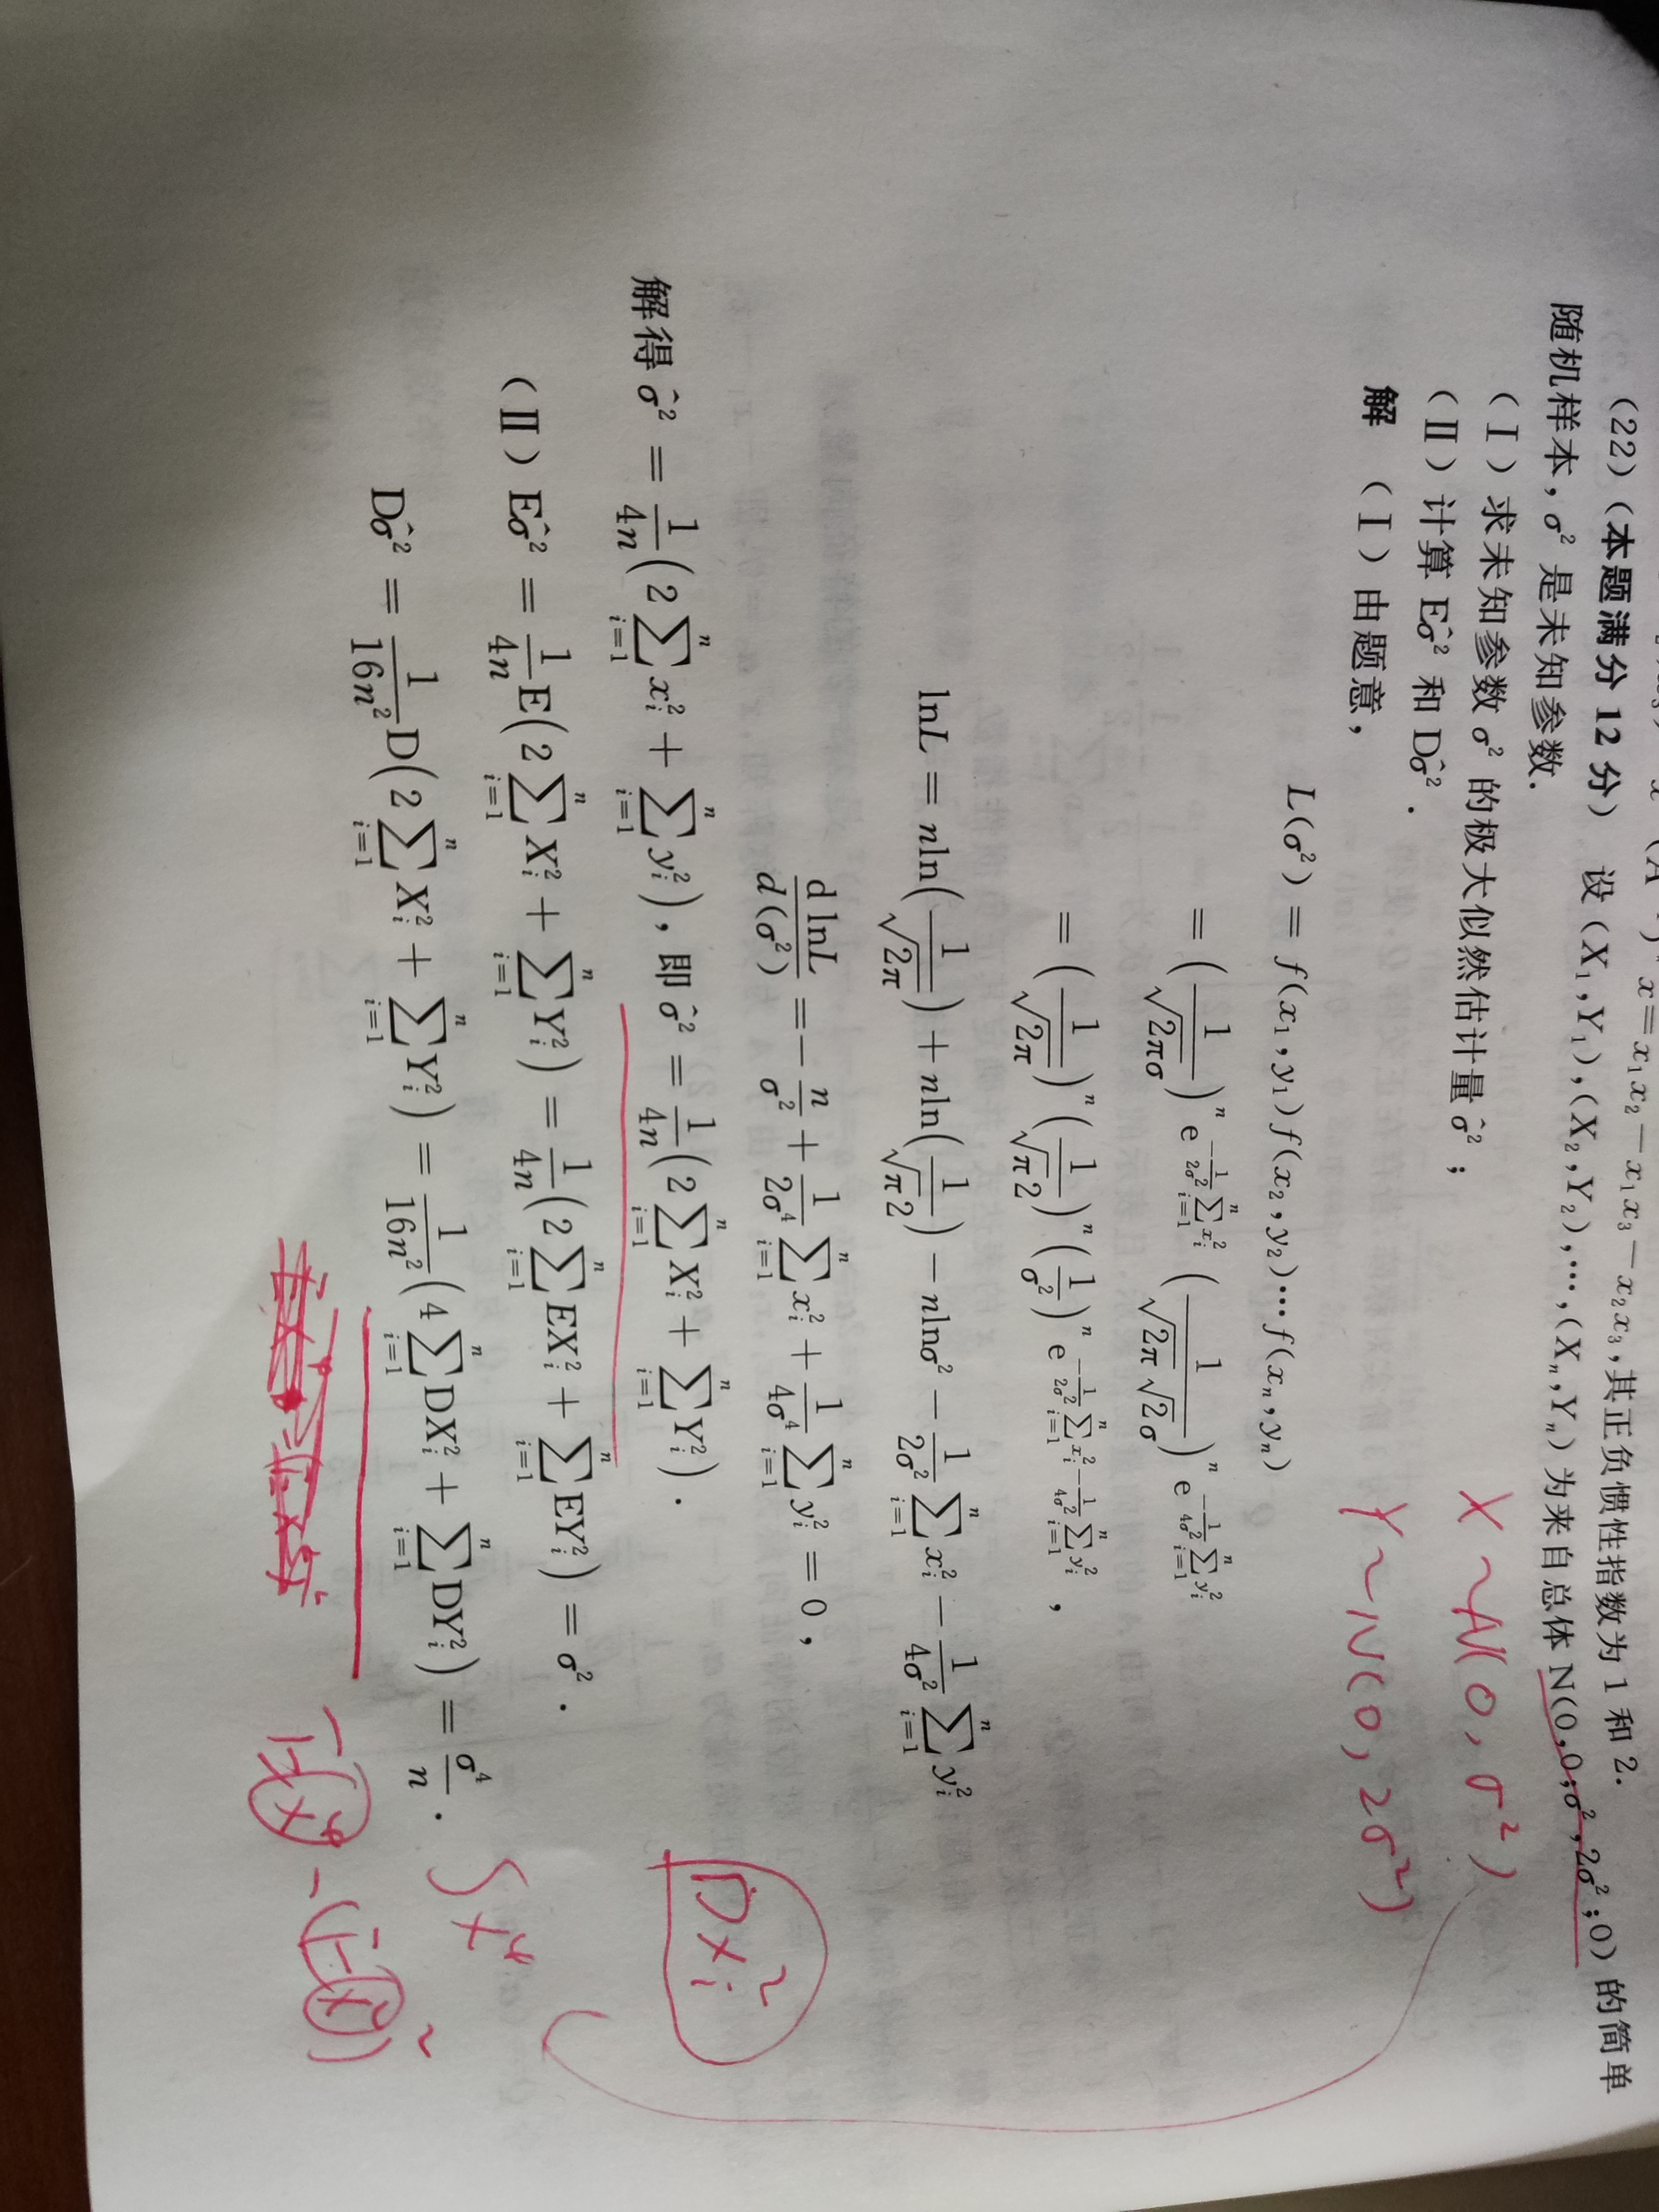 x=x₁x₂-x₁x₃-x₂x₃,其正负惯性指数为1和2.
(22)(本题满分12分) 设(X₁,Y₁),(X₂,Y₂),…,(Xₙ,Yₙ)为来自总体N(0,0;σ²,2σ²;0)的简单
随机样本,σ²是未知参数.
(Ⅰ)求未知参数σ²的极大似然估计量σ̂²;
X~N(0,σ²)
(Ⅱ)计算Eσ̂²和Dσ̂².
Y~N(0,2σ²)
解 (Ⅰ)由题意,
L(σ²)=f(x₁,y₁)f(x₂,y₂)…f(xₙ,yₙ)
=(1/(√(2π)σ))ⁿ e^{-1/(2σ²) ∑_{i=1}^{n} x_i²} (1/(√(2π)√2σ))ⁿ e^{-1/(4σ²) ∑_{i=1}^{n} y_i²}
=(1/√(2π))ⁿ (1/(√π2))ⁿ (1/σ²)ⁿ e^{-1/(2σ²) ∑_{i=1}^{n} x_i² - 1/(4σ²) ∑_{i=1}^{n} y_i²},
lnL=nln(1/√(2π))+nln(1/(√π2))-nlnσ²-1/(2σ²) ∑_{i=1}^{n} x_i²-1/(4σ²) ∑_{i=1}^{n} y_i²
dlnL/d(σ²)=-n/σ²+1/(2σ⁴) ∑_{i=1}^{n} x_i²+1/(4σ⁴) ∑_{i=1}^{n} y_i²=0,
解得σ̂²=1/(4n)(2∑_{i=1}^{n} x_i²+∑_{i=1}^{n} y_i²),即σ̂²=1/(4n)(2∑_{i=1}^{n} X_i²+∑_{i=1}^{n} Y_i²).
DX_i²
(Ⅱ)Eσ̂²=1/(4n)E(2∑_{i=1}^{n} X_i²+∑_{i=1}^{n} Y_i²)=1/(4n)(2∑_{i=1}^{n} EX_i²+∑_{i=1}^{n} EY_i²)=σ².
Dσ̂²=1/(16n²)D(2∑_{i=1}^{n} X_i²+∑_{i=1}^{n} Y_i²)=1/(16n²)(4∑_{i=1}^{n} DX_i²+∑_{i=1}^{n} DY_i²)=σ⁴/n.
∫x⁴
E(x⁴-(E(x²))²